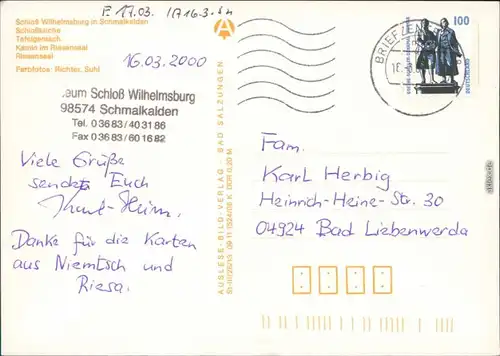 E 17.03.
Schloß Wilhelmsburg in Schmalkalden
Schloßkirche
Tafelgemach
Kamin im Riesensaal
Riesensaal
Farbfotos: Richter, Suhl
16.03.2000
eum Schloß Wilhelmsburg
98574 Schmalkalden
Tel. 0 36 83 / 40 31 86
Fax 0 36 83 / 60 16 82
Viele Grüße
sendet Euch
Danke für die Karten
aus Niemtsch und
Riesa.
A
AUSLESE-BILD-VERLAG · BAD SALZUNGEN
DDR 0,20 M
BRIEFZEN
100
DEUTSCHLAND
Fam.
Karl Herbig
Heinrich-Heine-Str. 30
04924 Bad Liebenwerda